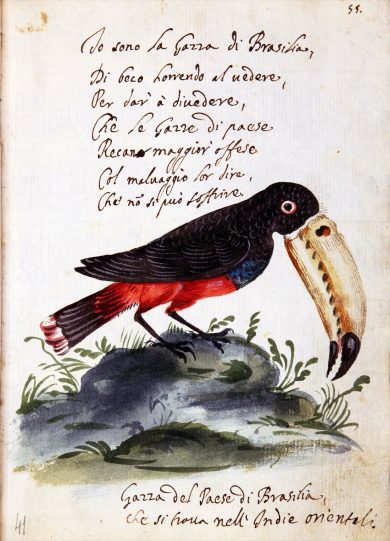 55.
Io sono la Gazza di Brasilia,
Di beco horrendo al uedere,
Per dar' à diuedere,
Che le Gazze di paese
Recano maggior' offese
Col maluaggio lor dire,
Che nõ si può soffrire
Gazza del Paese di Brasilia,
che si troua nell' Indie orientali.
41